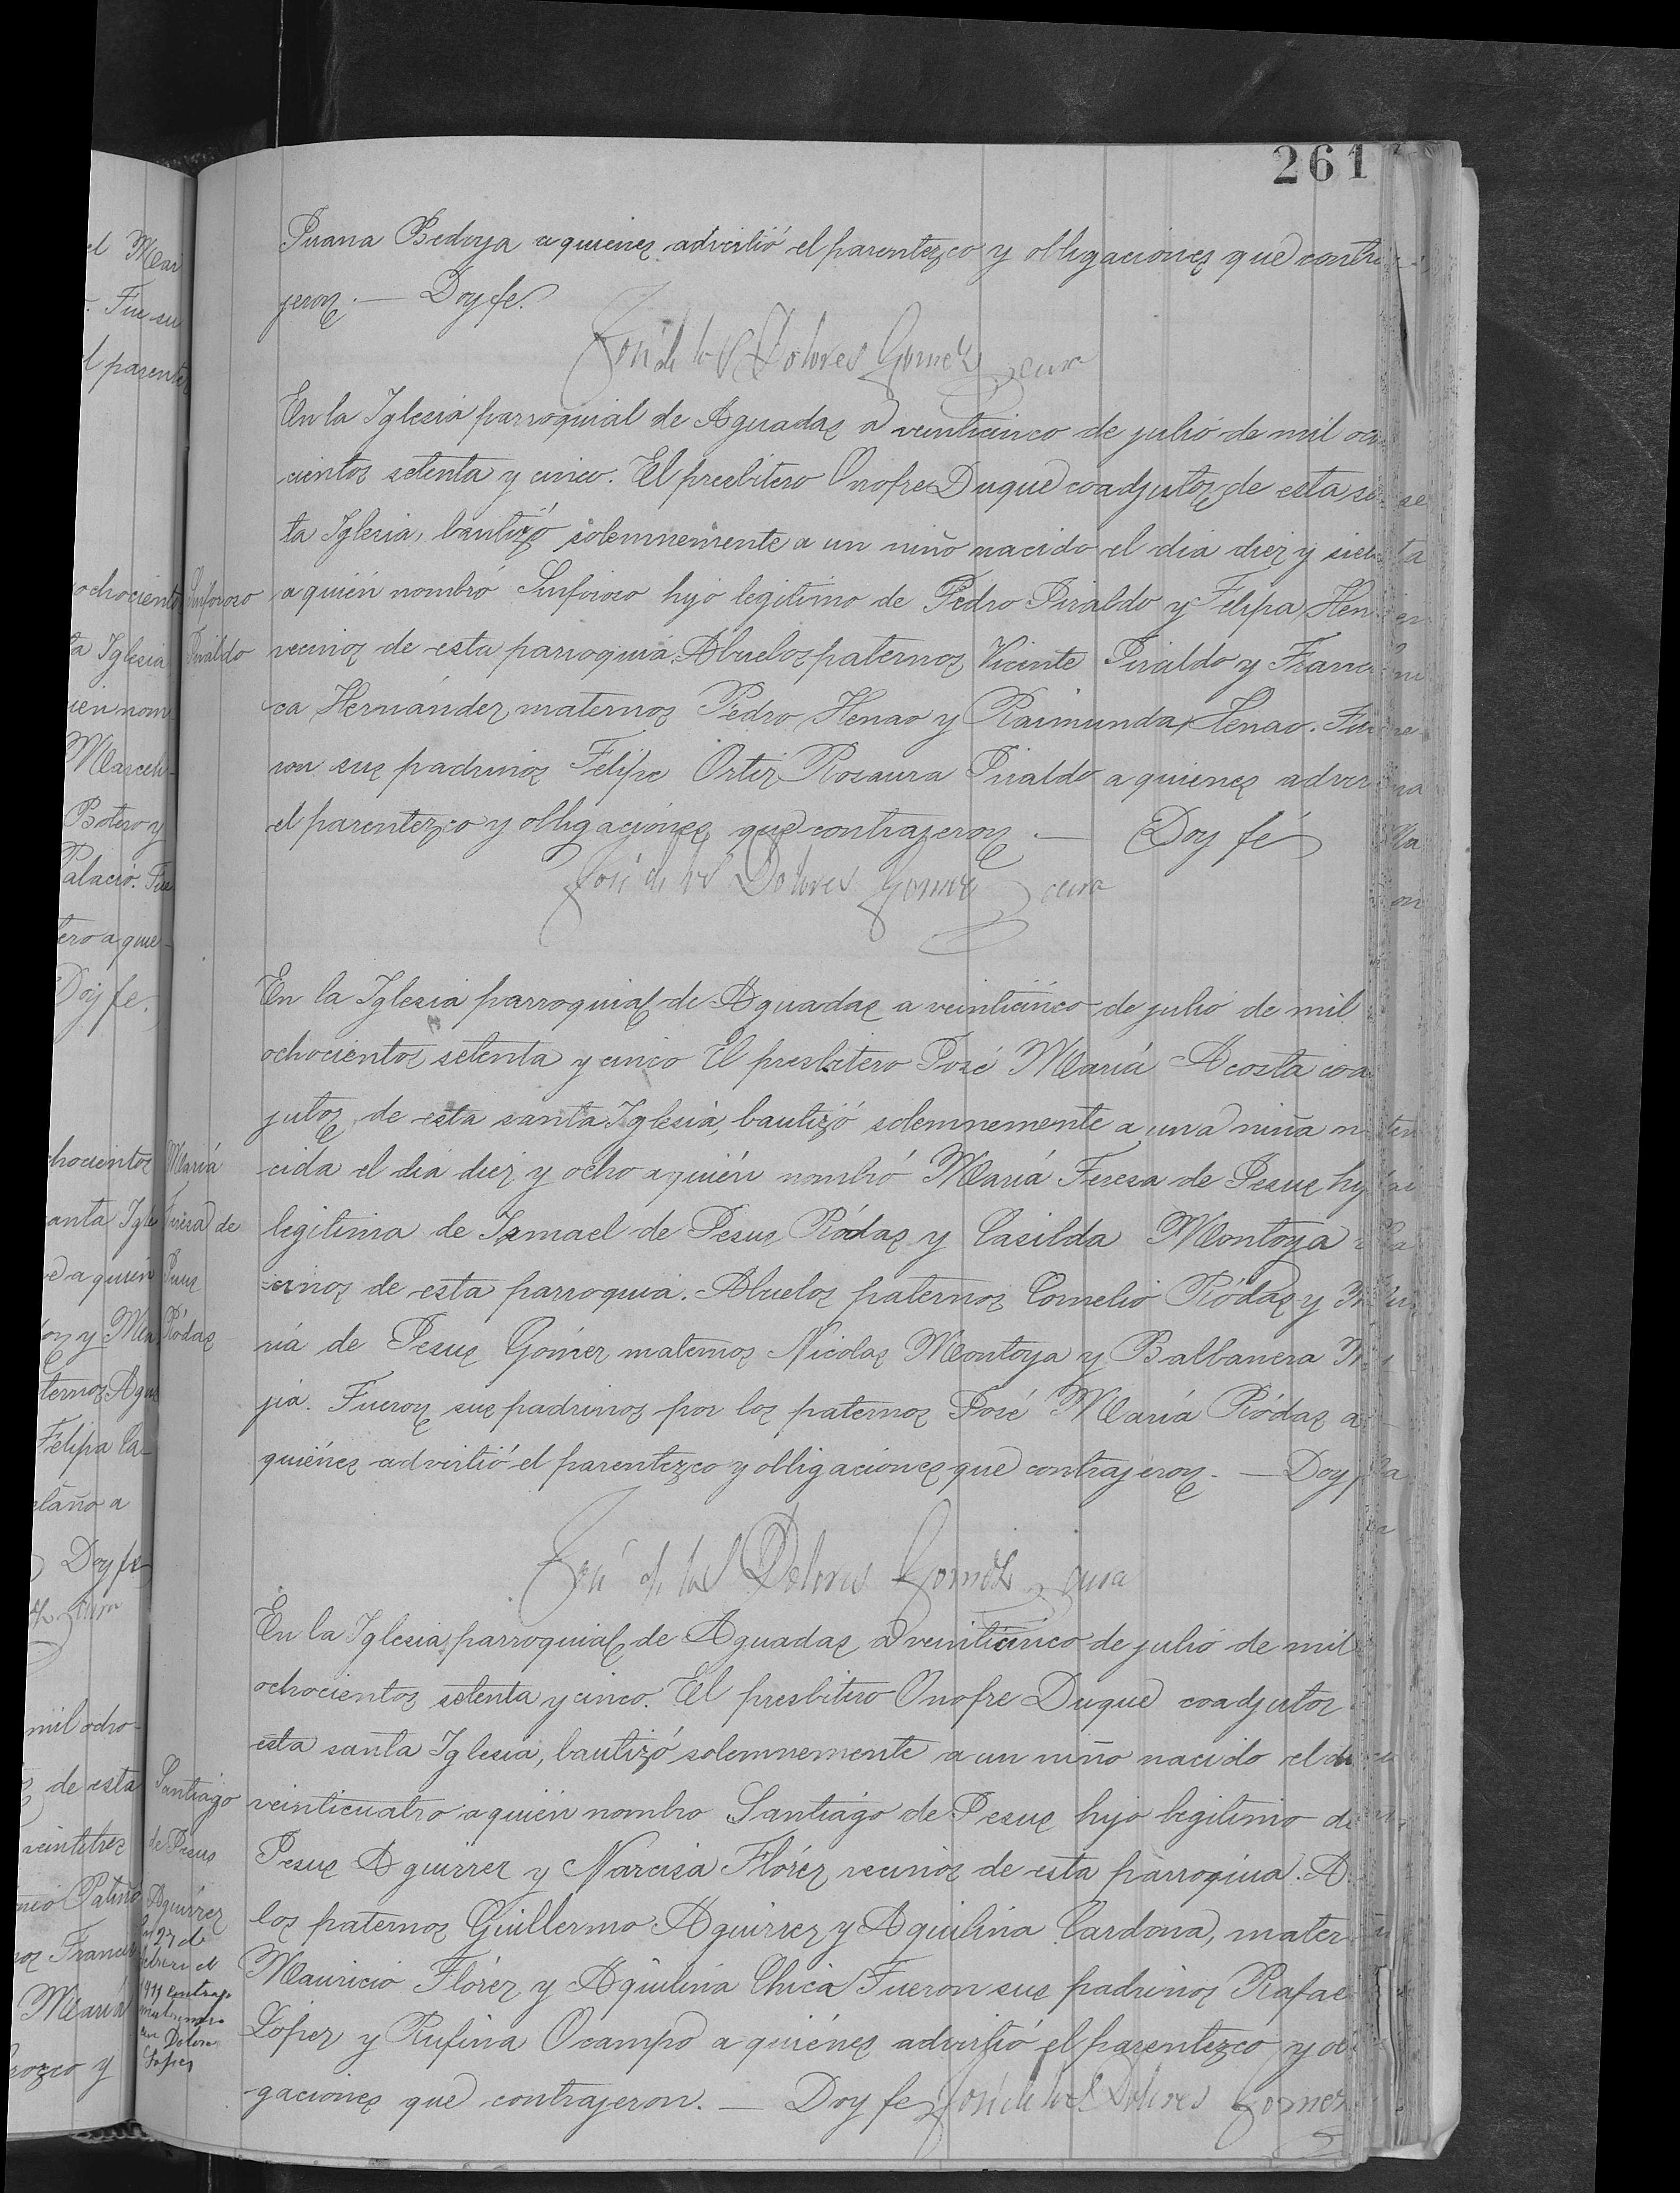 261
Juana Bedoya a quienes advirtió el parentezco y obligaciones que contra
jeron. — Doy fe.
José de los Dolores Gomez cura
En la Iglesia parroquial de Aguadas a veinticinco de julio de mil oc
cientos setenta y cinco. El presbitero Onofre Duque coadjutor de esta s
ta Iglesia, bautizó solemnemente a un niño nacido el dia diez y siete
Sinforoso
Giraldo
a quién nombró Sinforoso hijo legitimo de Pedro Giraldo y Felipa Hen
vecinos de esta parroquia, Abuelos paternos Vicente Giraldo y Franc
ca Hernández, maternos Pedro Henao y Raimunda Henao. Fue
ron sus padrinos Felipe Ortiz Rosaura Giraldo a quienes adver
el parentezco y obligaciónes que contrajeron. — Doy fé
José de los Dolores Gomez cura
En la Iglesia parroquial de Aguadas a veinticinco de julio de mil
ochocientos setenta y cinco El presbitero José María Acosta coa
jutor de esta santa Iglesia, bautizó solemnemente a una niña n
María
Teresa de
Jesus
Ródas
cida el dia diez y ocho a quién nombró María Teresa de Jesus hij
legitima de Ismael de Jesus Ródas y Casilda Montoya
cinos de esta parroquia. Abuelos paternos Cornelio Ródas y M
ria de Jesus Gómez maternos Nicolas Montoya y Balbanera M
jia. Fueron sus padrinos por los paternos José María Ródas a
quiénes advirtió el parentezco y obligaciones que contrajeron. — Doy f
José de los Dolores Gomez cura
En la Iglesia parroquial de Aguadas a veinticinco de julio de mil
ochocientos setenta y cinco. El presbitero Onofre Duque coadjutor
esta santa Iglesia, bautizó solemnemente a un niño nacido el di
Santiago
de Jesus
Aguirrez
El 27 de
febrero de
contrajo
matrimonio
con Dolores
López
veinticuatro a quién nombro Santiago de Jesus hijo legitimo de
Jesus Aguirrez y Narcisa Flórez vecinos de esta parroquia. A
los paternos Guillermo Aguirrez y Aquilina Cardona, mater
Mauricio Flórez y Aquilina Chica Fueron sus padrinos Rafae
López y Rufina Ocampo a quiénes advirtió el parentezco y ob
gaciones que contrajeron. — Doy fe José de los Dolores Gomez